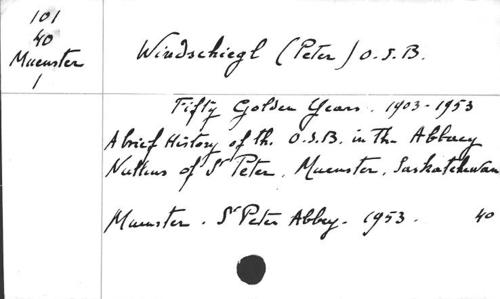 101
40
Muenster
1
Windschiegl (Peter) O.S.B.
Fifty Golden Years. 1903-1953
A brief History of the O.S.B. in the Abbacy
Nullius of St Peter, Muenster, Saskatchewan
Muenster. St Peter Abbey. 1953. 40